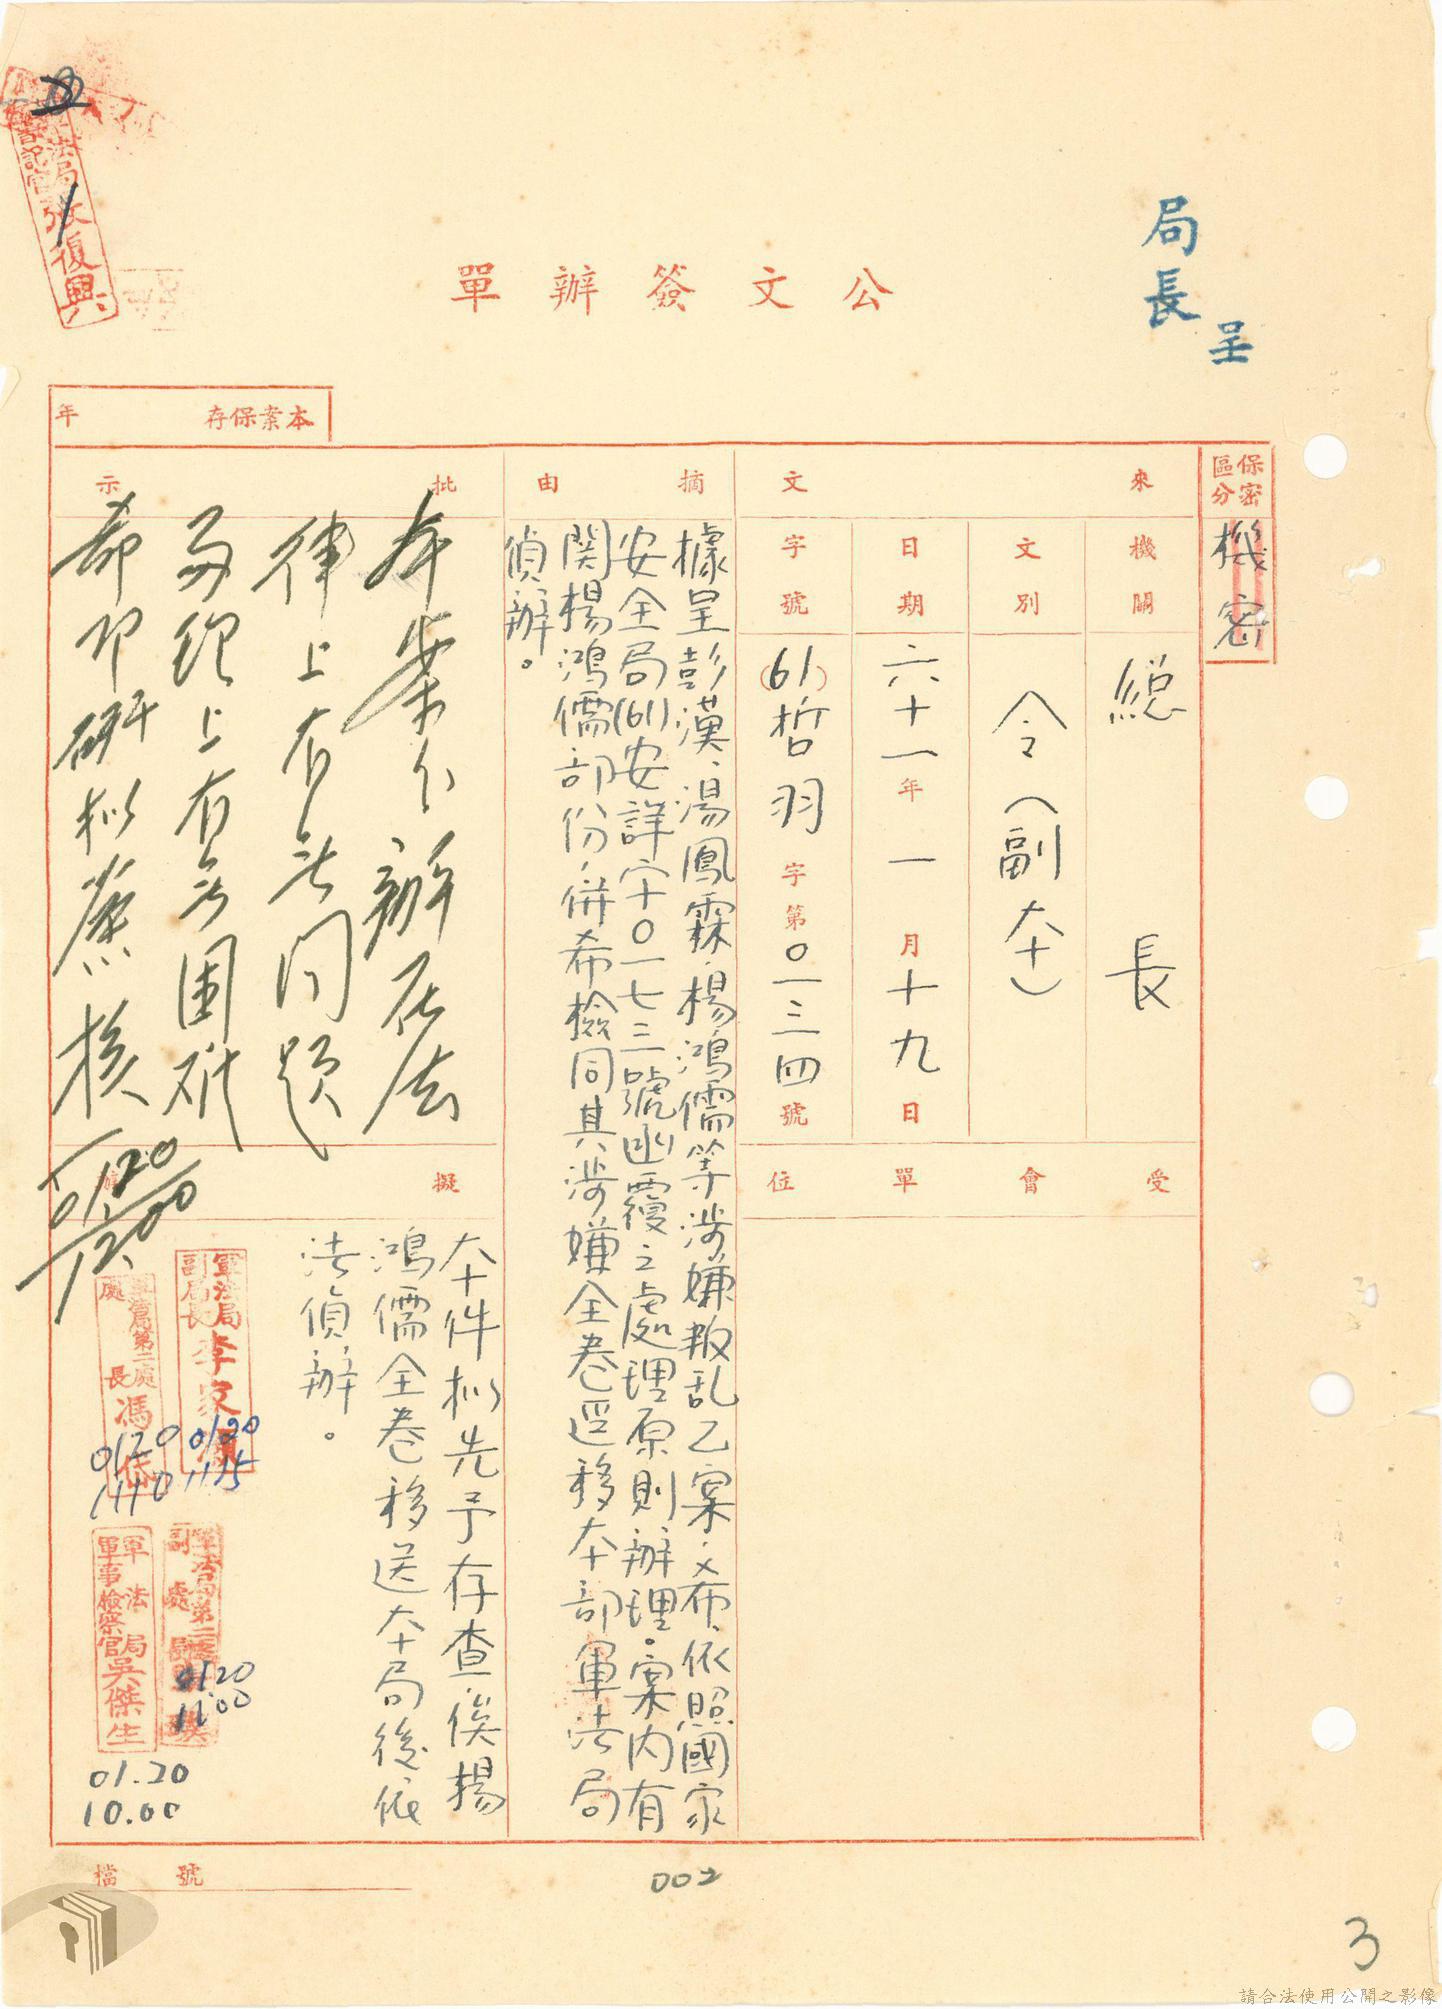 局長
呈
公文簽辦單
本案保存 年
保密區分
機密
來文
機關
總長
文別
令(副本)
日期
六十一年一月十九日
字號
(61)哲羽字第0一三四號
受會單位
摘由
據呈彭漢、湯鳳霖、楊鴻儒等涉嫌叛乱乙案,希依照國家
安全局(61)安詳字0一七三號函覆之處理原則辦理。案內有
関楊鴻儒部份,併希檢同其涉嫌全卷逕移本部軍法局
偵辦。
批示
本案分辦在法
律上有無問題
手續上有無困難
希即研擬簽核
0120
1200
擬辦
本件拟先予存查,俟楊
鴻儒全卷移送本局後依
法偵辦。
軍法局
副局長 李家
0120
1115
軍法局第二處
處長 馮
0120
1110
軍法局第二處
副處長
0120
11:00
軍法局
軍事檢察官 吳傑生
01.20
10.00
法局
書記官 張復興
檔號
002
3
請合法使用公開之影像